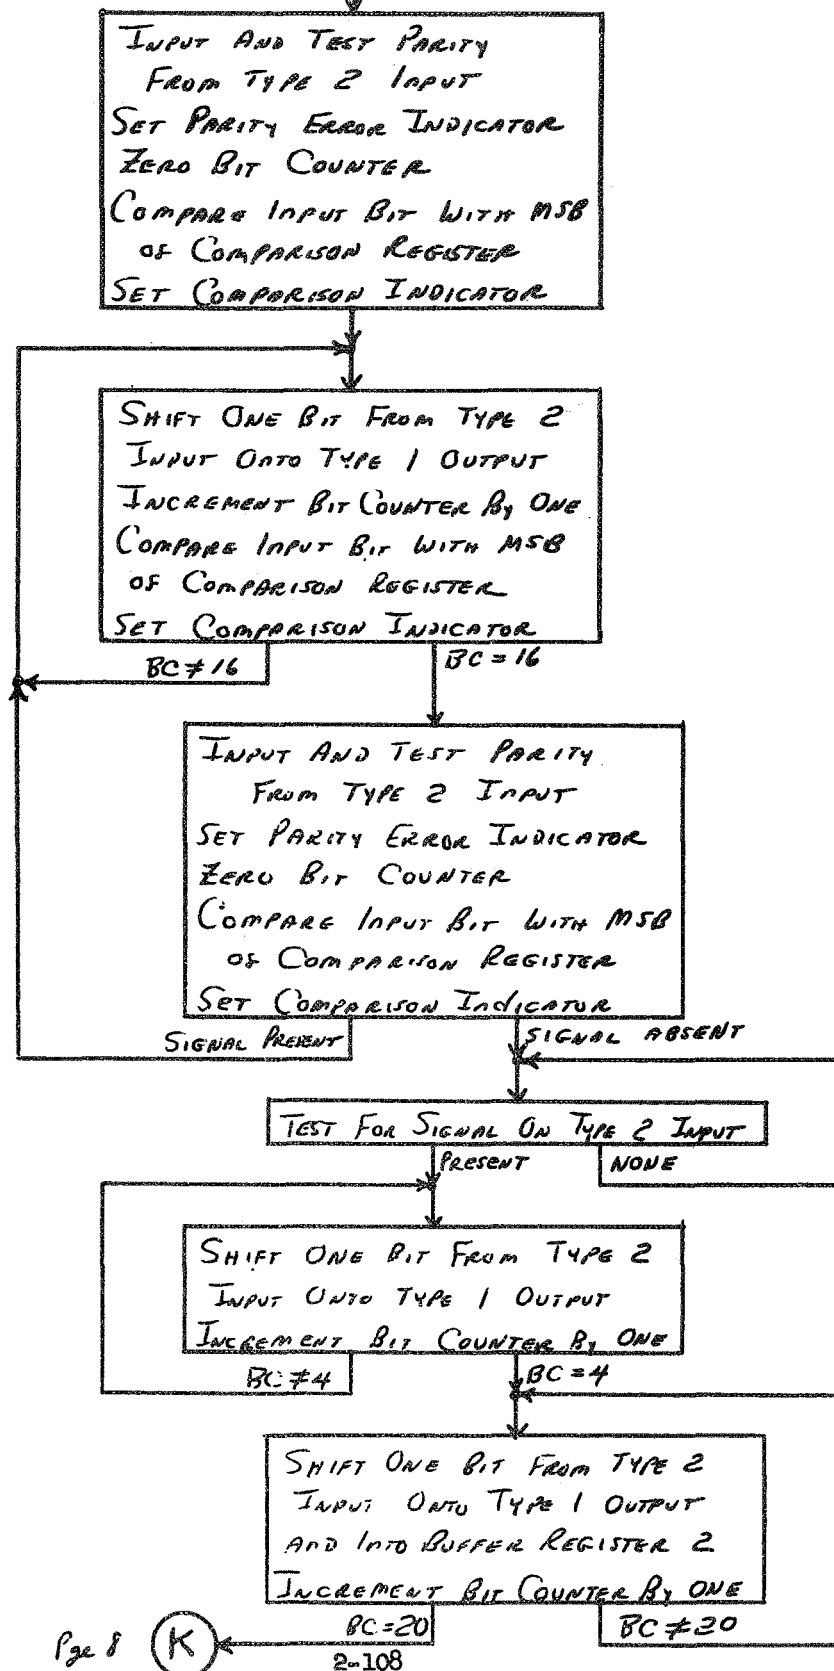 INPUT AND TEST PARITY
FROM TYPE 2 INPUT
SET PARITY ERROR INDICATOR
ZERO BIT COUNTER
COMPARE INPUT BIT WITH MSB
OF COMPARISON REGISTER
SET COMPARISON INDICATOR
SHIFT ONE BIT FROM TYPE 2
INPUT ONTO TYPE 1 OUTPUT
INCREMENT BIT COUNTER BY ONE
COMPARE INPUT BIT WITH MSB
OF COMPARISON REGISTER
SET COMPARISON INDICATOR
BC≠16
BC=16
INPUT AND TEST PARITY
FROM TYPE 2 INPUT
SET PARITY ERROR INDICATOR
ZERO BIT COUNTER
COMPARE INPUT BIT WITH MSB
OF COMPARISON REGISTER
SET COMPARISON INDICATOR
SIGNAL PRESENT
SIGNAL ABSENT
TEST FOR SIGNAL ON TYPE 2 INPUT
PRESENT
NONE
SHIFT ONE BIT FROM TYPE 2
INPUT ONTO TYPE 1 OUTPUT
INCREMENT BIT COUNTER BY ONE
BC≠4
BC=4
SHIFT ONE BIT FROM TYPE 2
INPUT ONTO TYPE 1 OUTPUT
AND INTO BUFFER REGISTER 2
INCREMENT BIT COUNTER BY ONE
BC=20
BC≠20
Pge 8
K
2-108